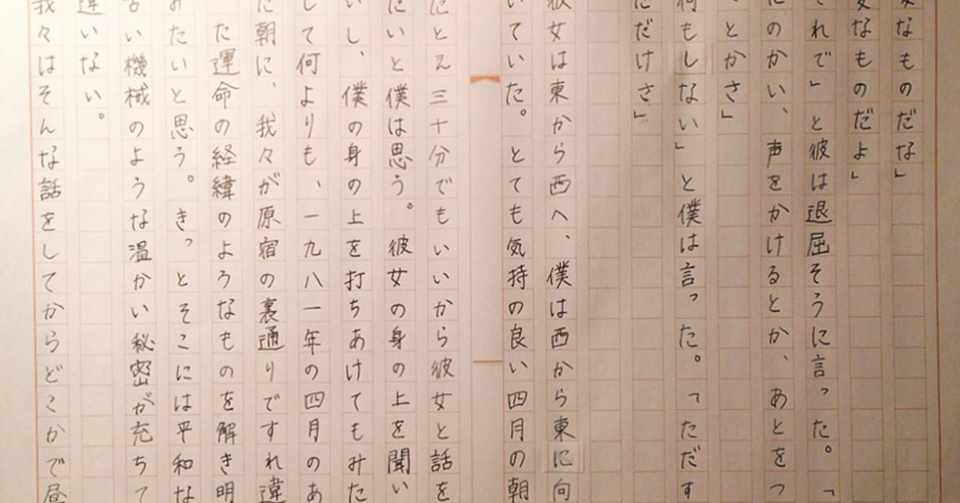 変なものだな」
変なものだよ」
れで」と彼は退屈そうに言った。「
のかい、声をかけるとか、あとをつ
とかさ」
何もしない」と僕は言った。「ただす
だけさ」
彼女は東から西へ、僕は西から東に向
いていた。とても気持の良い四月の朝
たとえ三十分でもいいから彼女と話を
たいと僕は思う。彼女の身の上を聞い
いし、僕の身の上を打ちあけてもみた
して何よりも、一九八一年の四月のあ
た朝に、我々が原宿の裏通りですれ違
た運命の経緯のようなものを解き明
みたいと思う。きっとそこには平和な
古い機械のような温かい秘密が充ちて
違いない。
我々はそんな話をしてからどこかで昼